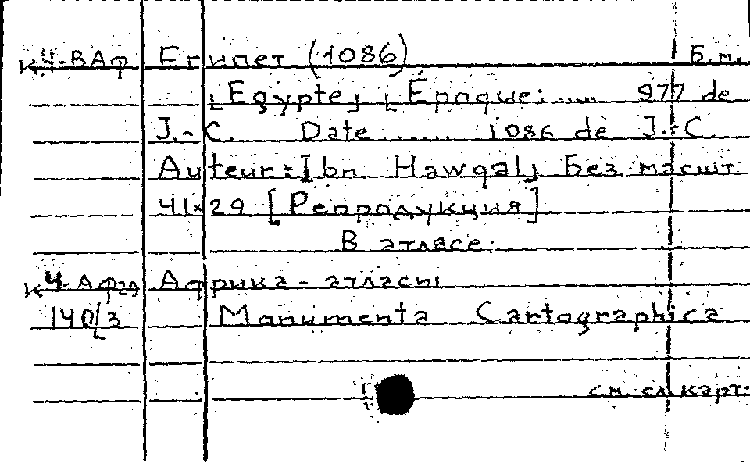 К4-ВАф Египет (1086) Б.м.
[Egypte] [Époque:.... 977 de
J.-C. Date ...... 1086 de J.-C.
Auteur: Ibn Hawqal] Без масшт.
41×29 [Репродукция]
В атласе:
К4-Аф Африка - атласы
140/3 Monumenta Cartographica
см. сл. карт.